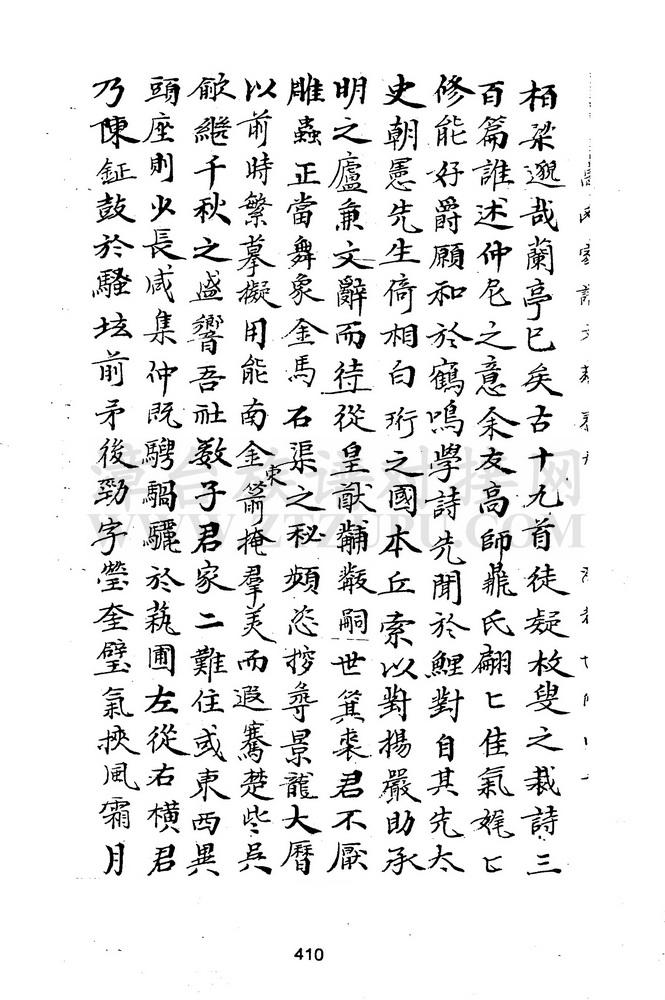 栢梁邈哉蘭亭已矣古十九首徒疑枚叟之裁詩三
百篇誰述仲尼之意余友高師鼎氏翩匕佳氣娓匕
修能好爵願和於鶴鳴學詩先聞於鯉對自其先太
史朝憲先生倚相白珩之國本丘索以對揚嚴助承
明之廬兼文辭而待從皇猷黼黻嗣世箕裘君不厭
雕蟲正當舞象金馬石渠之秘頻恣捋尋景龍大曆
以前時繁摹擬用能南金東箭掩羣美而遐騫楚些吳
歈繼千秋之盛響吾社數子君家二難住或東西異
頭座則少長咸集仲既騁騧驪於蓺圃左從右橫君
乃陳鉦鼓於騷坫前矛後勁字瑩奎璧氣挾風霜月
漳台族谱对接网
WWW.ZTZUPU.COM
410